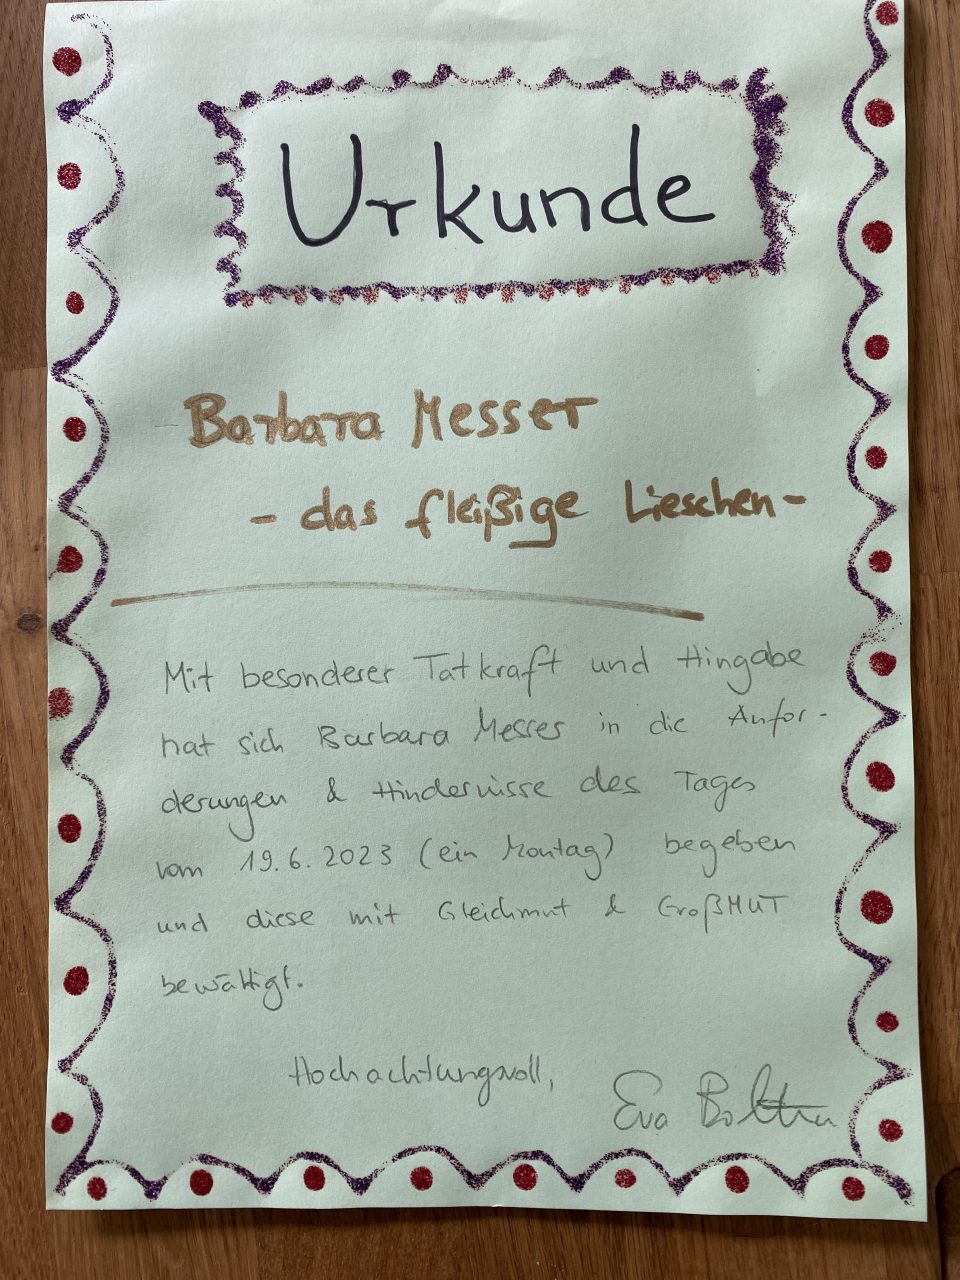 Urkunde
Barbara Messer
- das fleißige Lieschen -
Mit besonderer Tatkraft und Hingabe
hat sich Barbara Messer in die Anfor-
derungen & Hindernisse des Tages
vom 19.6.2023 (ein Montag) begeben
und diese mit Gleichmut & GroßMUT
bewältigt.
Hochachtungsvoll,
Eva